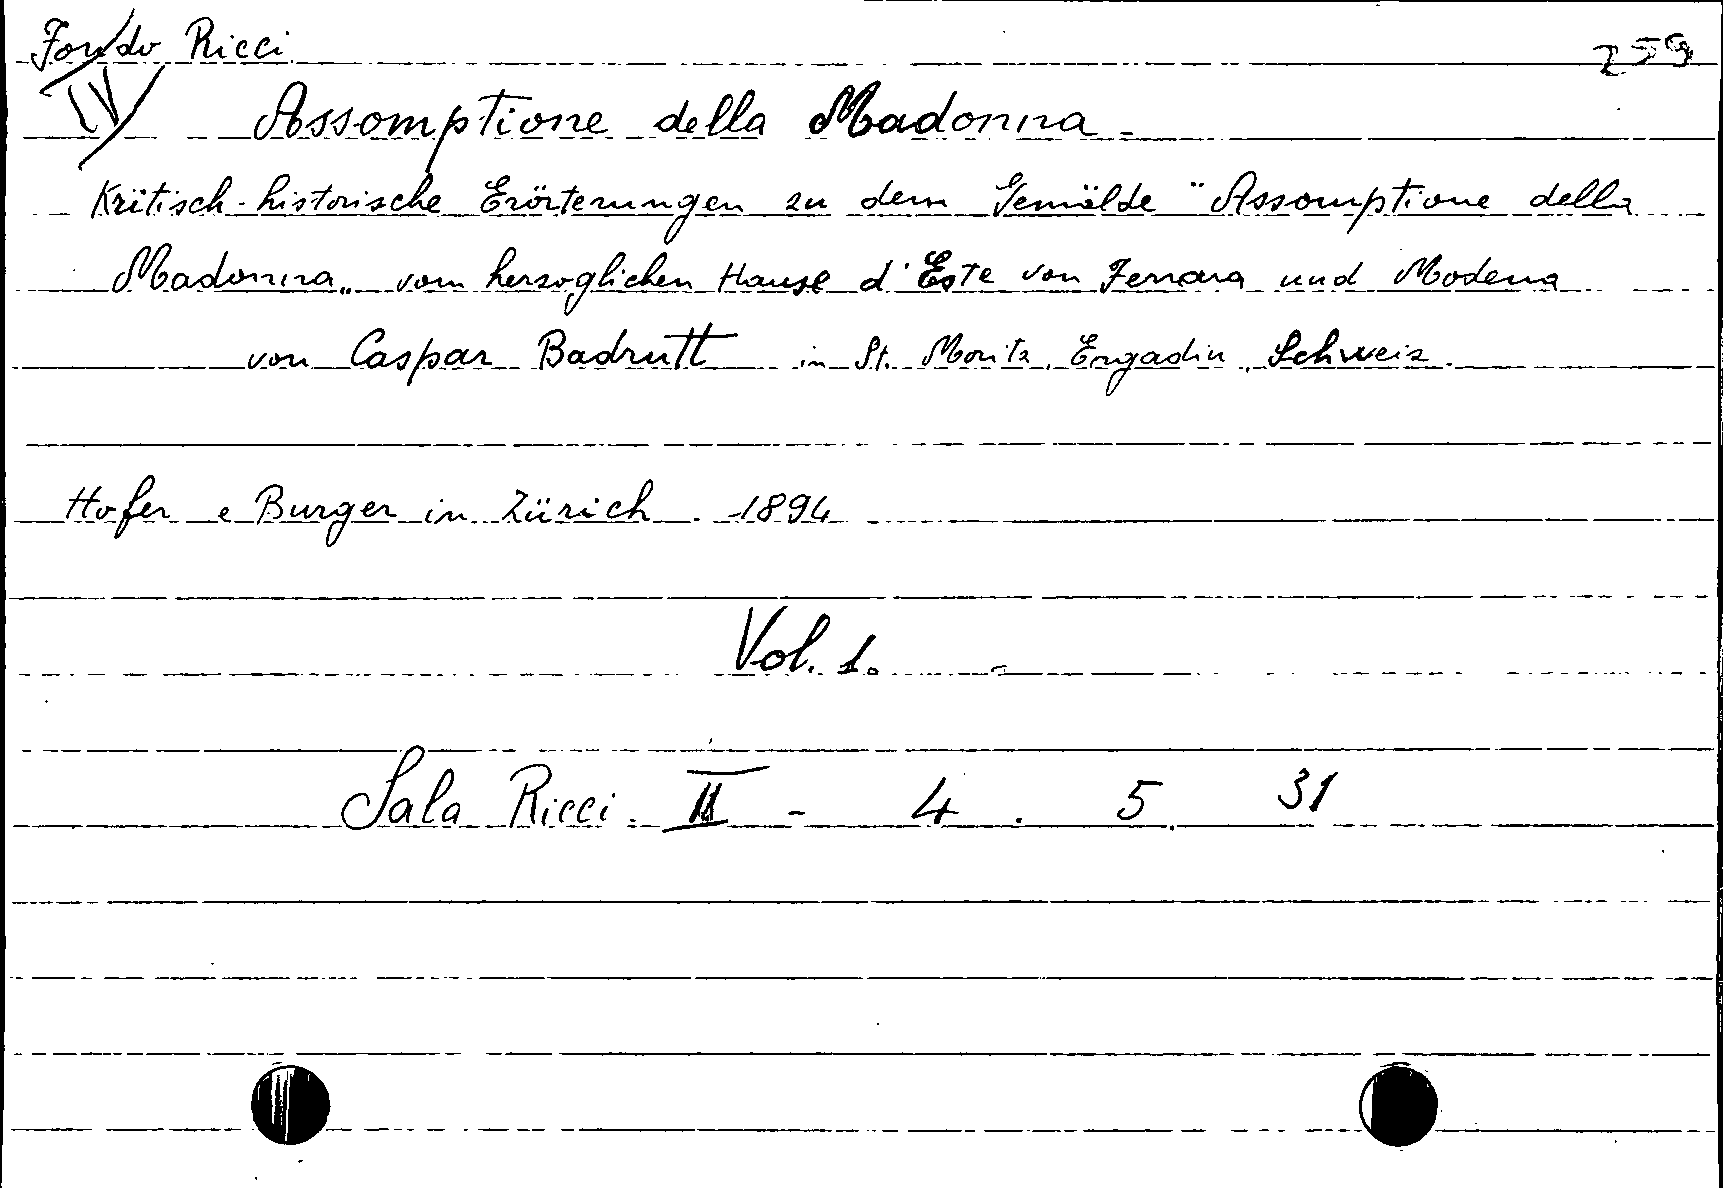 Fondo Ricci 259
IV Assomptione della Madonna -
Kritisch-historische Erörterungen zu dem Gemälde "Assomptione della
Madonna„ vom herzoglichen Hause d'Este von Ferrara und Modena
von Caspar Badrutt in St. Moritz, Engadin, Schweiz.
Hofer e Burger in Zürich. 1894
Vol. 1.
Sala Ricci. II - 4. 5. 31